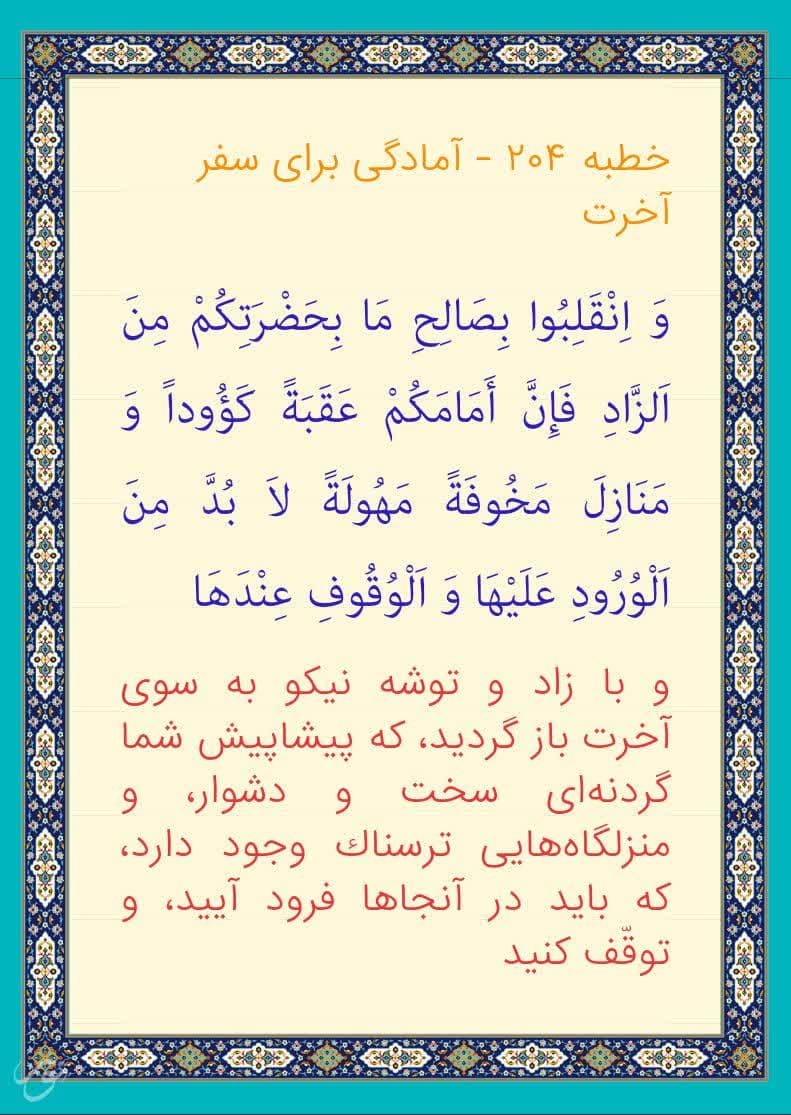 خطبه ۲۰۴ - آمادگی برای سفر
آخرت
وَ اِنْقَلِبُوا بِصَالِحِ مَا بِحَضْرَتِكُمْ مِنَ
اَلزَّادِ فَإِنَّ أَمَامَكُمْ عَقَبَةً كَؤُوداً وَ
مَنَازِلَ مَخُوفَةً مَهُولَةً لاَ بُدَّ مِنَ
اَلْوُرُودِ عَلَيْهَا وَ اَلْوُقُوفِ عِنْدَهَا
و با زاد و توشه نیکو به سوی
آخرت باز گردید، که پیشاپیش شما
گردنه‌ای سخت و دشوار، و
منزلگاه‌هایی ترسناك وجود دارد،
که باید در آنجاها فرود آیید، و
توقّف کنید